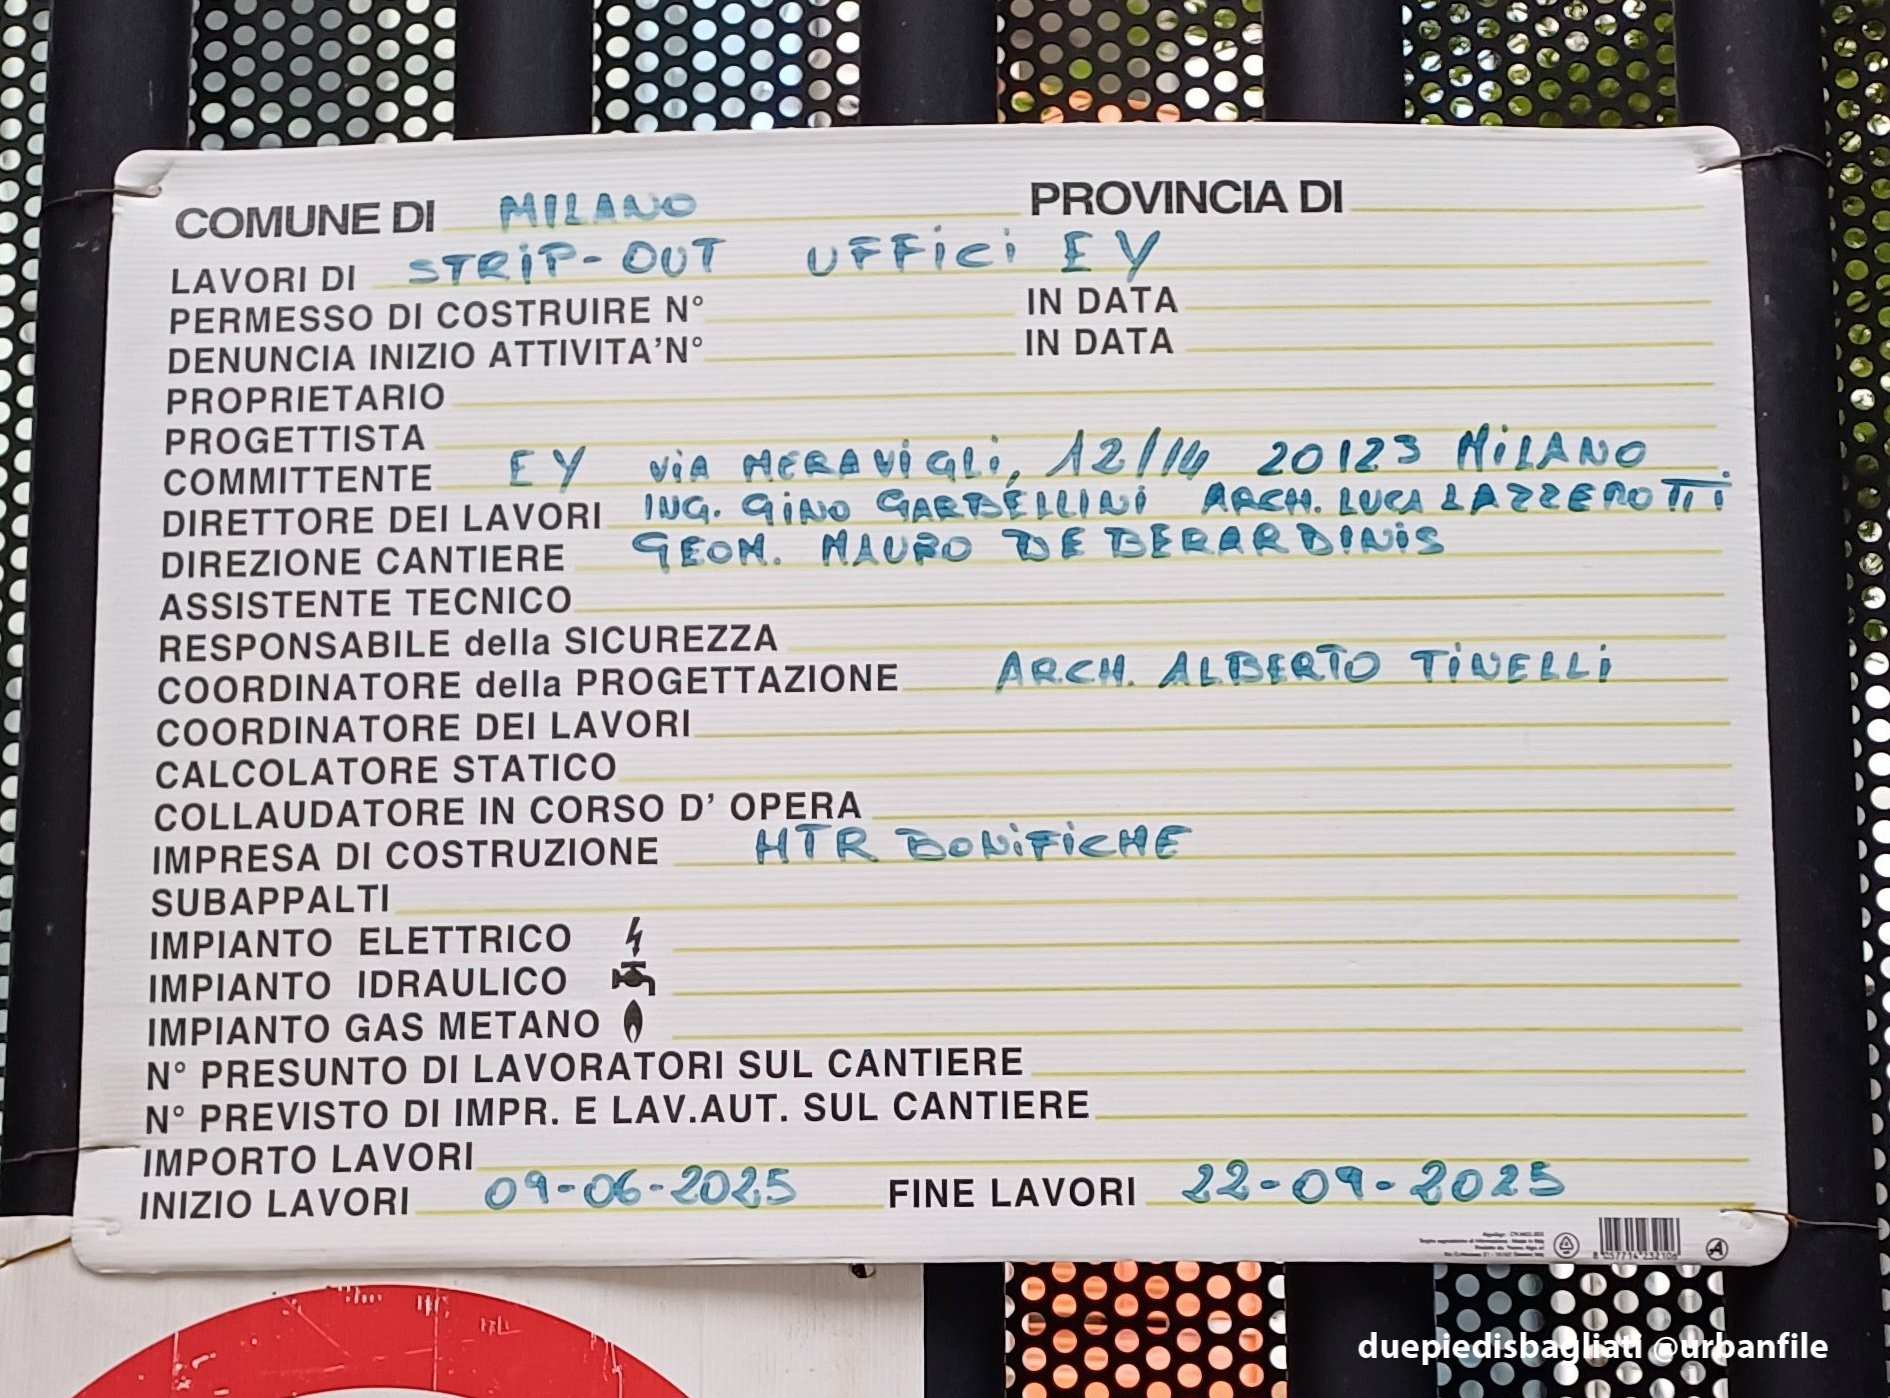 COMUNE DI MILANO PROVINCIA DI
LAVORI DI STRIP-OUT UFFICI EY
PERMESSO DI COSTRUIRE N° IN DATA
DENUNCIA INIZIO ATTIVITA'N° IN DATA
PROPRIETARIO
PROGETTISTA
COMMITTENTE EY VIA MERAVIGLI, 12/14 20123 MILANO
DIRETTORE DEI LAVORI ING. GINO GARBELLINI ARCH. LUCA LAZZEROTTI
DIREZIONE CANTIERE GEOM. MAURO DE BERARDINIS
ASSISTENTE TECNICO
RESPONSABILE della SICUREZZA
COORDINATORE della PROGETTAZIONE ARCH. ALBERTO TINELLI
COORDINATORE DEI LAVORI
CALCOLATORE STATICO
COLLAUDATORE IN CORSO D' OPERA
IMPRESA DI COSTRUZIONE HTR BONIFICHE
SUBAPPALTI
IMPIANTO ELETTRICO
IMPIANTO IDRAULICO
IMPIANTO GAS METANO
N° PRESUNTO DI LAVORATORI SUL CANTIERE
N° PREVISTO DI IMPR. E LAV.AUT. SUL CANTIERE
IMPORTO LAVORI
INIZIO LAVORI 09-06-2025 FINE LAVORI 22-09-2025
duepiedisbagliati @urbanfile